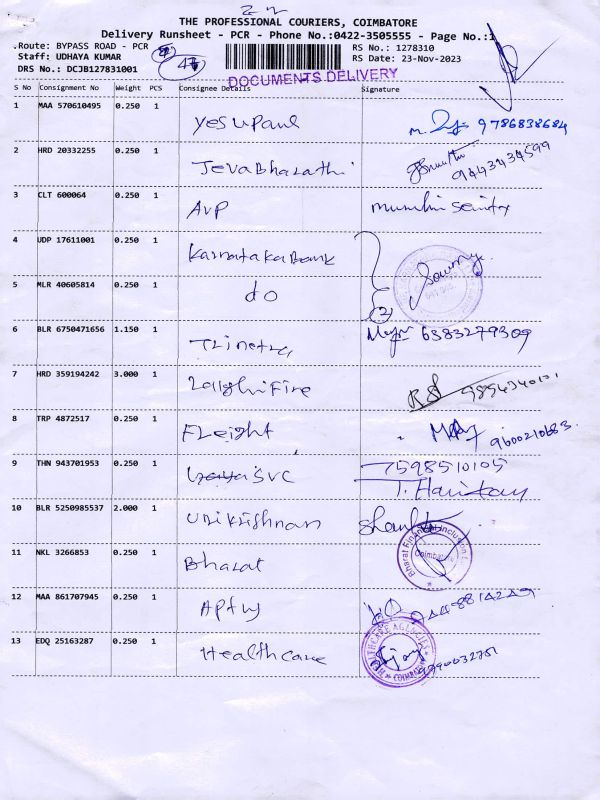 THE PROFESSIONAL COURIERS, COIMBATORE
Delivery Runsheet - PCR - Phone No.:0422-3505555 - Page No.:1
Route: BYPASS ROAD - PCR
RS No.: 1278310
Staff: UDHAYA KUMAR
RS Date: 23-Nov-2023
DRS No.: DCJB127831001
DOCUMENTS DELIVERY
S No Consignment No Weight PCS Consignee Details Signature
1 MAA 570610495 0.250 1
Yesupaul 9786838684
2 HRD 20332255 0.250 1
JevaBharathi 9443434599
3 CLT 600064 0.250 1
AVP
4 UDP 17611001 0.250 1
Karnataka Bank
5 MLR 40605814 0.250 1
do
2
6 BLR 6750471656 1.150 1
Trinetra 6383279309
7 HRD 359194242 3.000 1
8 TRP 4872517 0.250 1
FLeight 9600210683.
9 THN 943701953 0.250 1
SVC 7598510105
T. Hari
10 BLR 5250985537 2.000 1
Unikrishnan
11 NKL 3266853 0.250 1
Bharat
Bharat Financial Inclusion
Coimbatore
12 MAA 861707945 0.250 1
13 EDQ 25163287 0.250 1
Healthcare
HEALTHCARE AGENCIES
COIMBATORE